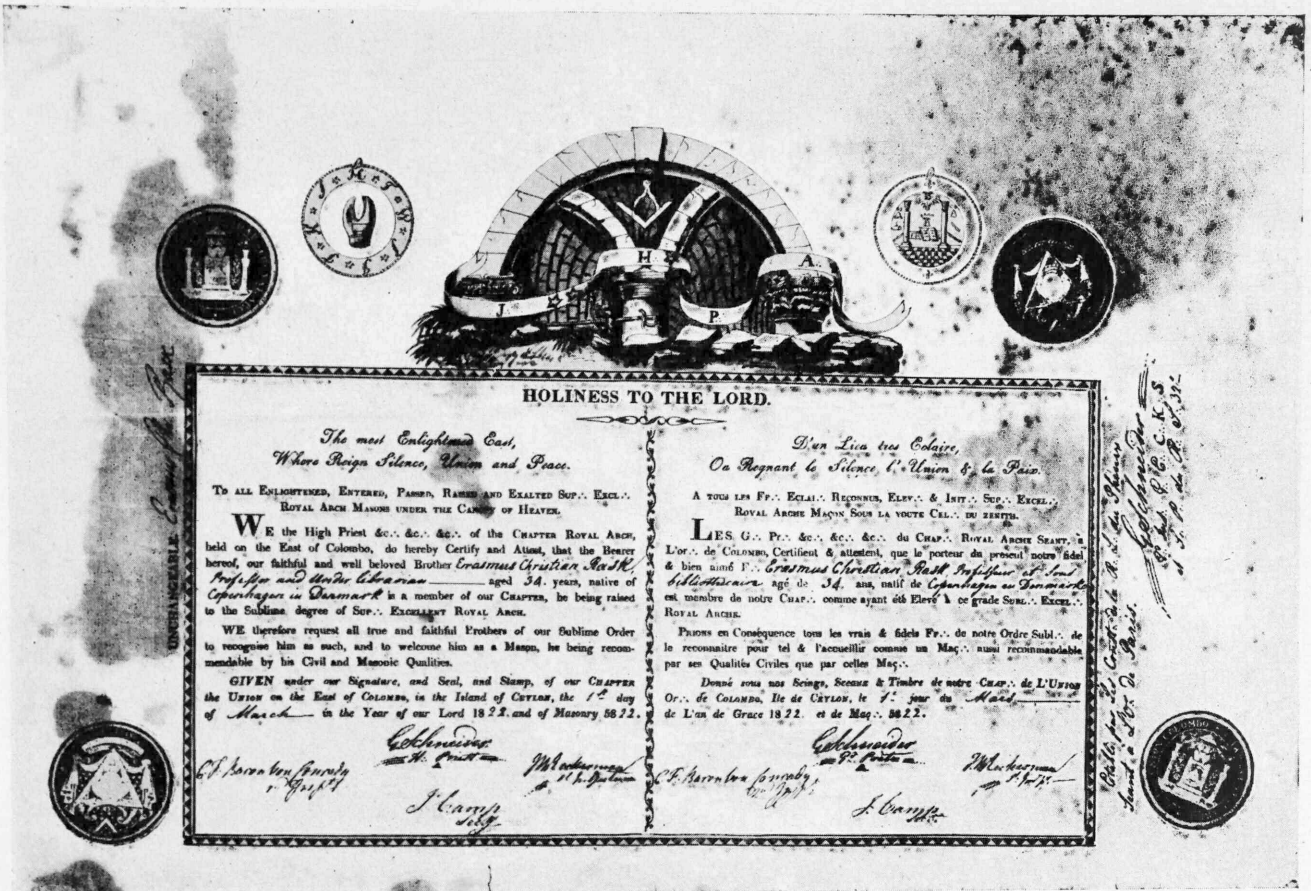 K * J * H * T * W * J * J * J
H
A
J
P
HOLINESS TO THE LORD.
The most Enlightened East,
Where Reign Silence, Union and Peace.
To all Enlightened, Entered, Passed, Raised and Exalted Sup∴ Excl∴
Royal Arch Masons under the Canopy of Heaven.
WE the High Priest &c∴ &c∴ &c∴ of the Chapter Royal Arch,
held on the East of Colombo, do hereby Certify and Attest, that the Bearer
hereof, our faithful and well beloved Brother Erasmus Christian Rask,
Professor and Under librarian aged 34. years, native of
Copenhagen in Denmark is a member of our Chapter, he being raised
to the Sublime degree of Sup∴ Excellent Royal Arch.
WE therefore request all true and faithful Brothers of our Sublime Order
to recognise him as such, and to welcome him as a Mason, he being recom-
mendable by his Civil and Masonic Qualities.
GIVEN under our Signature, and Seal, and Stamp, of our Chapter
the Union on the East of Colombo, in the Island of Ceylon, the 1st day
of March in the Year of our Lord 1822. and of Masonry 5822.
GSchneider
H. Priest
J. Camp
D'un Lieu tres Eclaire,
Ou Regnant le Silence, l'Union & la Paix.
A tous les Fr∴ Eclai∴ Reconnus, Elev∴ & Init∴ Sup∴ Excel∴
Royal Arche Maçon Sous la voute Cel∴ du zenith.
LES G∴ Pr∴ &c∴ &c∴ &c∴ du Chap∴ Royal Arche Seant, a
L'or∴ de Colombo, Certifient & attestent, que le porteur du present notre fidel
& bien aimé F∴ Erasmus Christian Rask, Professeur et Sous
bibliothecaire agé de 34. ans, natif de Copenhague en Denmark
est membre de notre Chap∴ comme ayant été Elevé à ce grade Subl∴ Excel∴
Royal Arche.
Prions en Conséquence tous les vrais & fidels Fr∴ de notre Ordre Subl∴ de
le reconnaitre pour tel & l'accueillir comme un Maç∴ aussi recommandable
par ses Qualités Civiles que par celles Maç∴
Donné sous nos Seings, Sceaux & Timbre de notre Chap∴ de L'Union
Or∴ de Colombo, Ile de Ceylon, le 1r. jour du Mars
de L'an de Grace 1822. et de Maç∴ 5822.
GSchneider
J. Camp
UNCHANGEABLE
GSchneider
Seant a L'Or. de Paris.